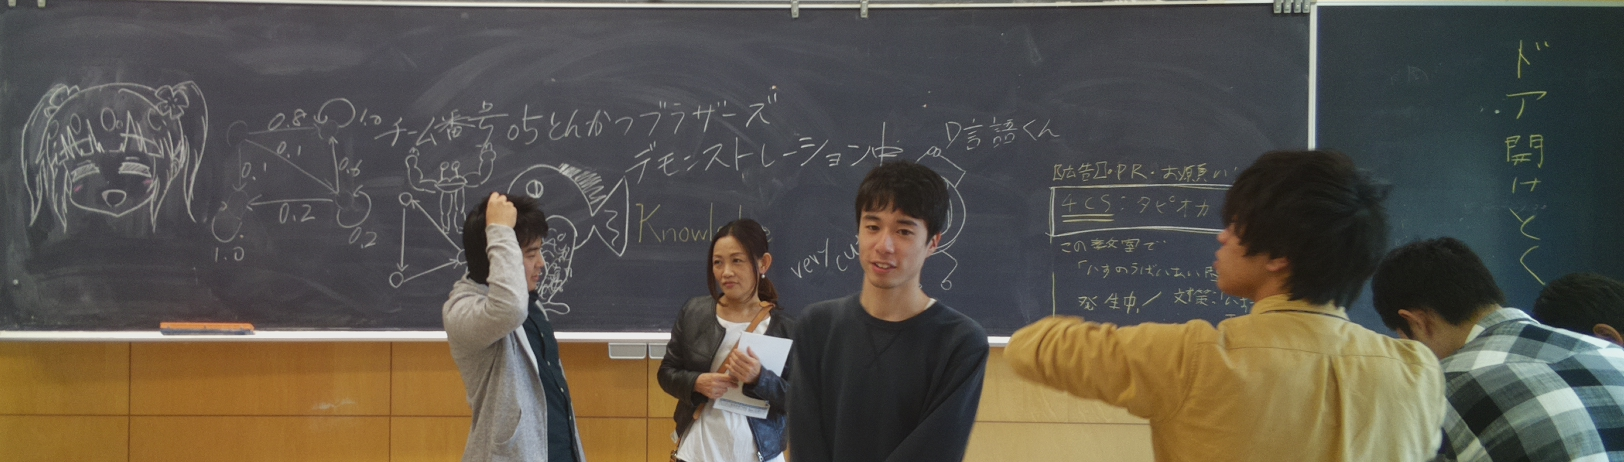 0.8
1.0
0.1
0.1
0.6
0.2
0.2
1.0
チーム番号05とんかつブラザーズ
デモンストレーション中
Knowl
very
D言語くん
【広告】・PR・お願い
4CS：タピオカ
この教室で
発生中！対策：
ドア開けとく